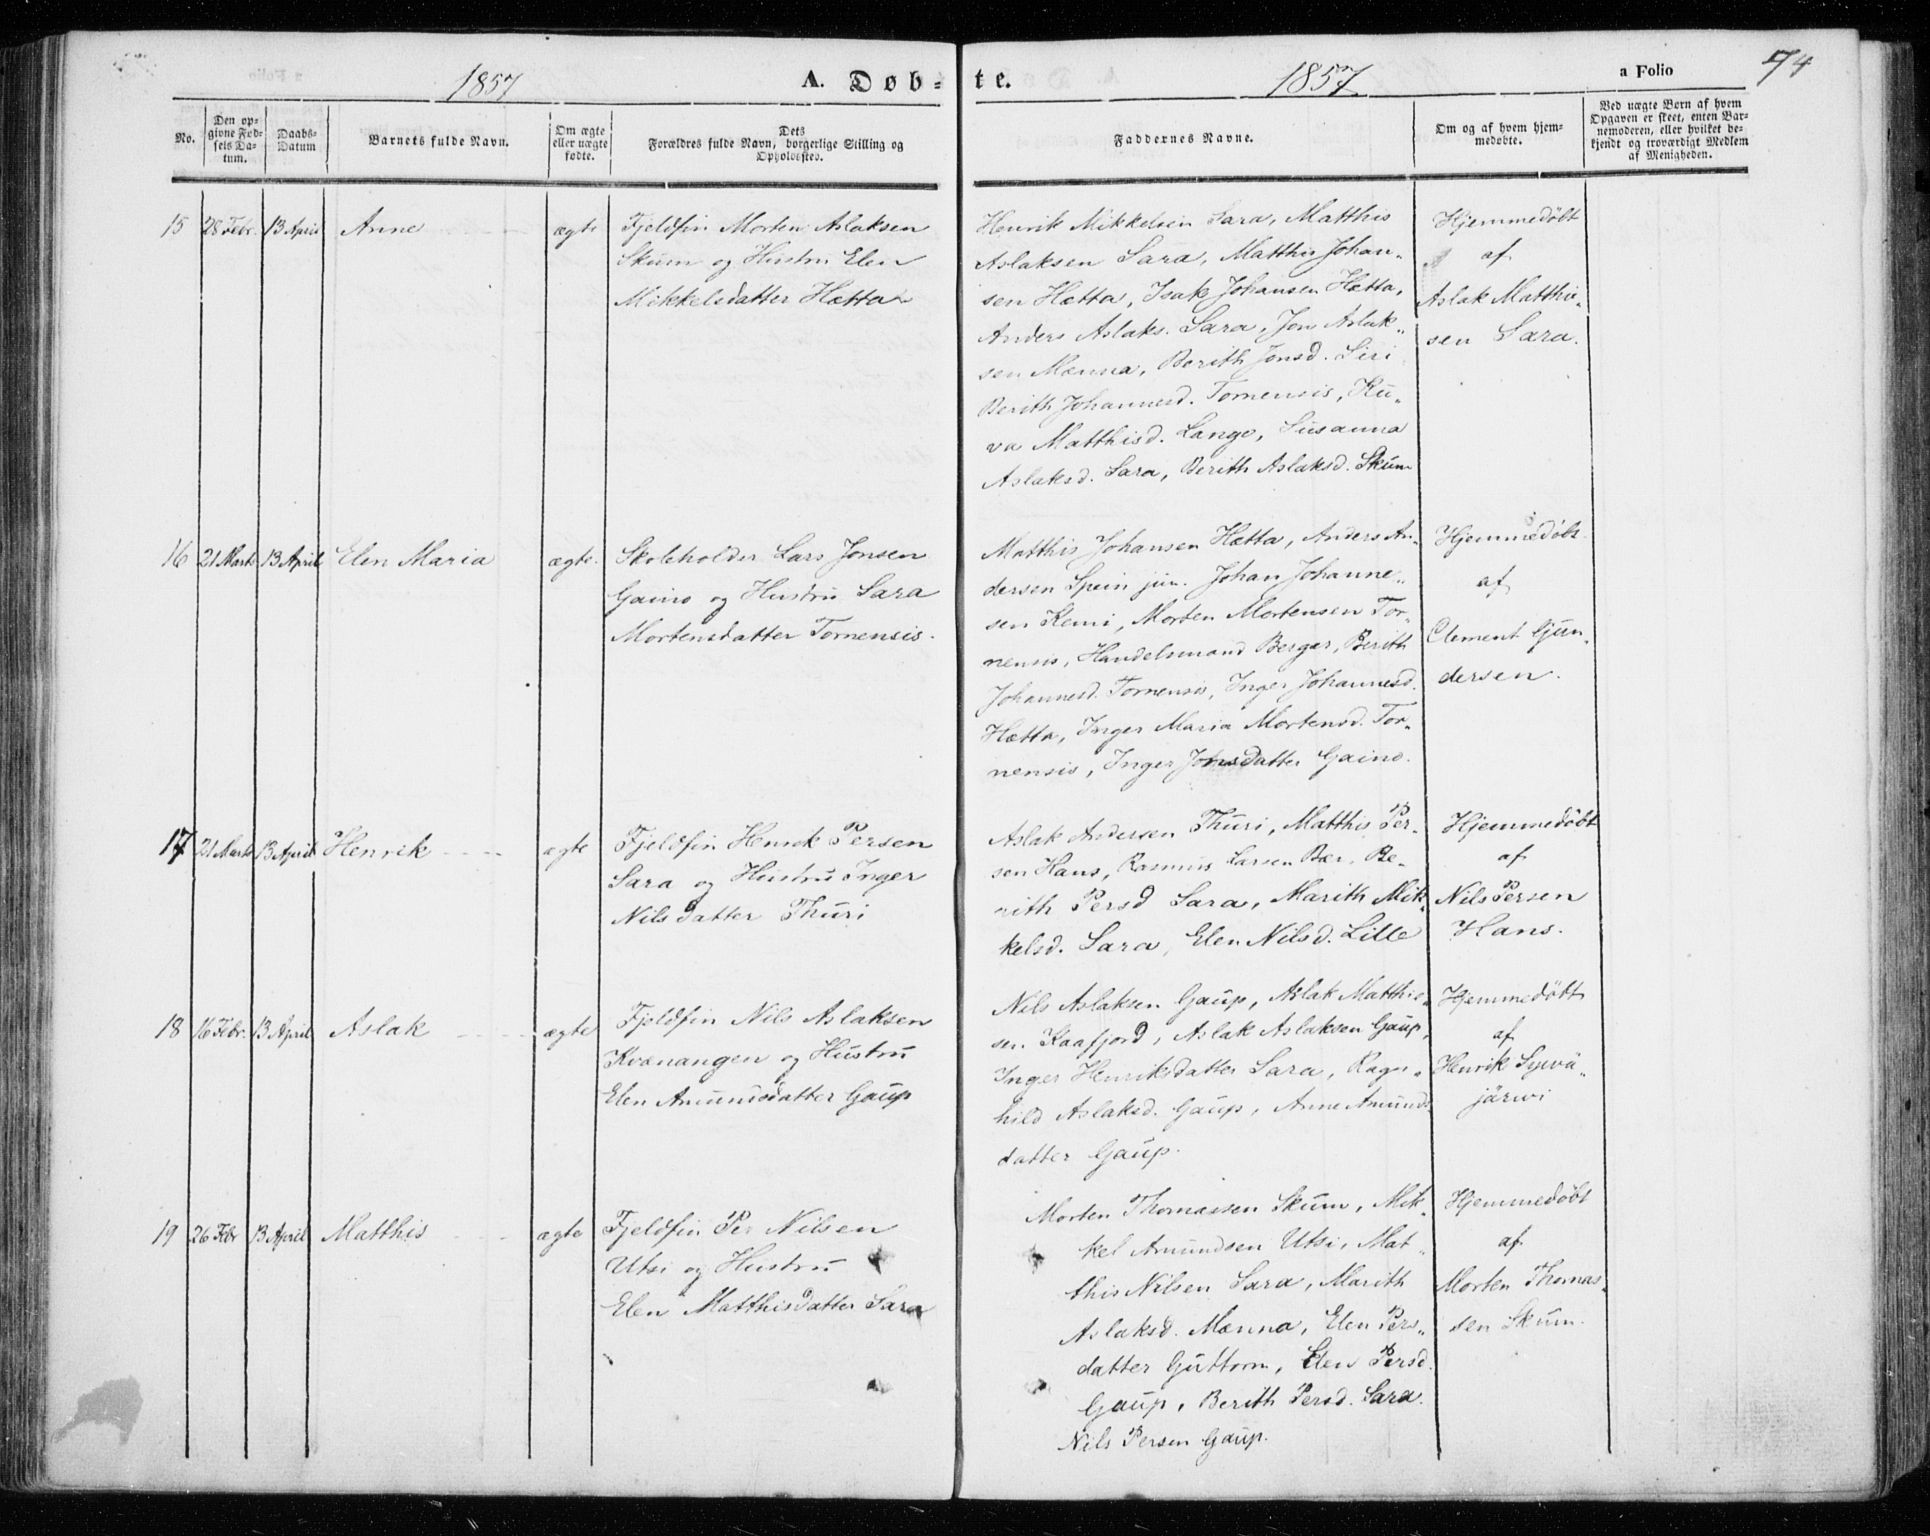 1857 A. Døb- te. 1857. a Folio 74
No.
Den op-
givne Fød-
sels Da-
tum.
Daabs-
Datum
Barnets fulde Navn.
Om ægte
eller uægte
fødte.
Dets
Forældres fulde Navn, borgerlige Stilling og
Opholdssted.
Faddernes Navne.
Om og af hvem hjem-
medøbte.
Ved uægte Born af hvem
Opgaven er skeet, enten Bar-
nemoderen, eller hvilket be-
kjendt og troværdigt Medlem
af Menigheden.
15 28 Febr. 13 April Anne ægte
Fjeldfin Morten Aslaksen
Skum og Hustru Elen
Mikkelsdatter Hætta
Henrik Mikkelsen Sara, Matthis
Aslaksen Sara, Matthis Johan-
sen Hætta, Isak Johansen Hætta,
Anders Aslaks. Sara, Jon Aslak-
sen Mænna, Berith Jonsd. Siri
Berith Johannesd. Tornensis, Ku-
va Matthisd. Lango, Susanna
Aslaksd. Sara, Berith Aslaksd. Skum
Hjemmedöbt
af
Aslak Matthi-
sen Sara.
16 21 Marts 13 April Elen Maria ægte.
Skoleholder Lars Jonsen
Gaino og Hustru Sara
Mortensdatter Tornensis.
Matthis Johansen Hætta, Anders An-
dersen Spein jun. Johan Johanne-
sen Kemi, Morten Mortensen Tor-
nensis, Handelsmand Berger, Berith
Johannesd. Tornensis, Inger Johannesd.
Hætta, Inger Maria Mortensd. Tor-
nensis, Inger Jonsdatter Gaino.
Hjemmedöbt
af
Clement Gun-
dersen.
17 21 Marts 13 April Henrik ægte
Fjeldfin Henrik Persen
Sara og Hustru Inger
Nilsdatter Thuri
Aslak Andersen Thuri, Matthis Per-
sen Hans, Rasmus Larsen Bær, Be-
rith Persd Sara, Marith Mik-
kelsd. Sara, Elen Nilsd. Lille
Hjemmedöbt
af
Nils Persen
Hans.
18 16 Febr. 13 April Aslak ægte
Fjeldfin Nils Aslaksen
Kvænangen og Hustru
Elen Amundsdatter Gaup
Nils Aslaksen Gaup, Aslak Matthi-
sen Kaafjord, Aslak Aslaksen Gaup,
Inger Henriksdatter Sara, Ragn-
hild Aslaksd. Gaup, Anne Amunds
datter Gaup.
Hjemmedöbt
af
Henrik Syvä-
järwi
19 26 Febr 13 April Matthis ægte
Fjeldfin Per Nilsen
Utsi og Hustru
Elen Matthisdatter Sara
Morten Thomassen Skum, Mik-
kel Amundsen Utsi, Mat-
this Nilsen Sara, Marith
Aslaksd. Mænna, Elen Pers-
datter Guttorm, Elen Persd.
Gaup, Berith Persd. Sara.
Nils Persen Gaup.
Hjemmedöbt
af
Morten Thomas-
sen Skum.